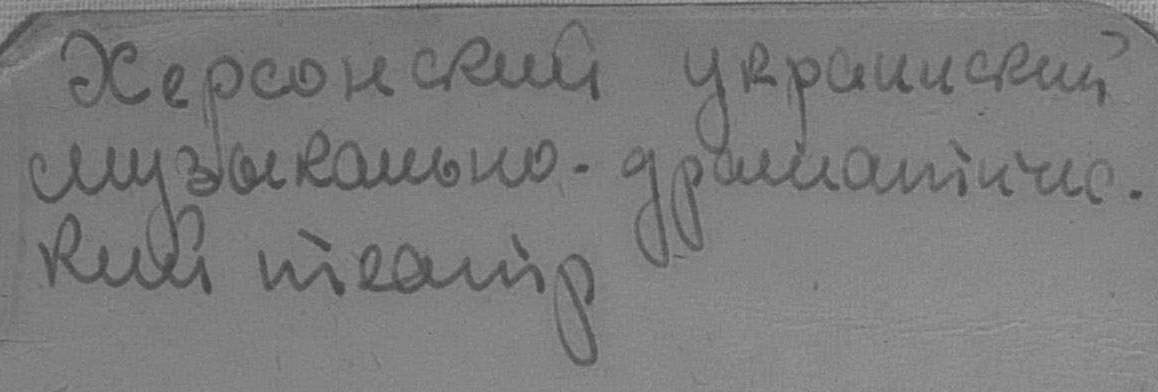 Херсонский украинский
музыкально-драматичес-
кий театр